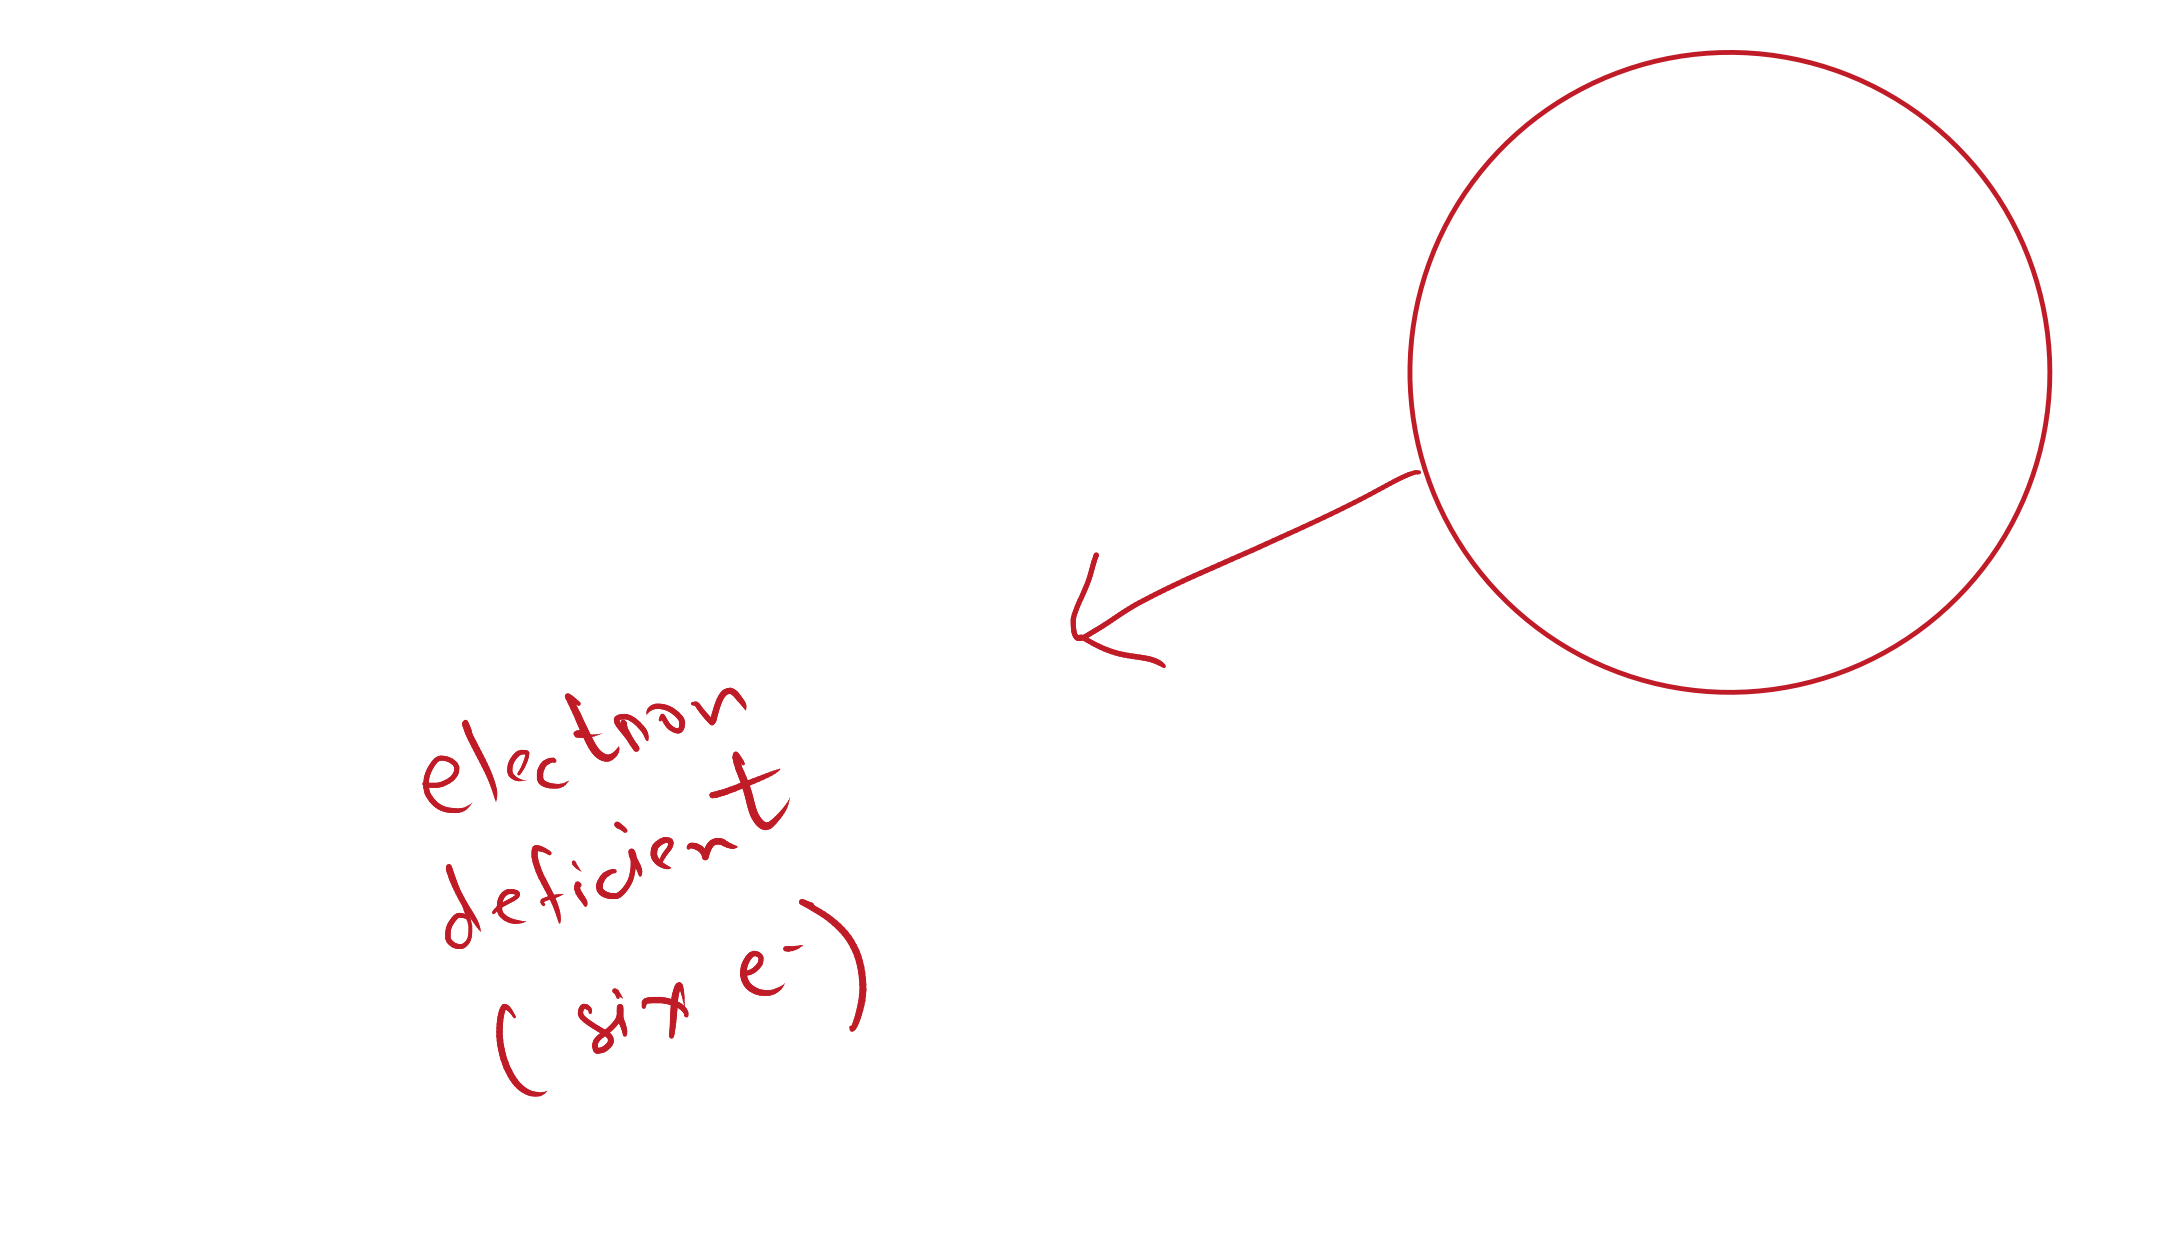 electron
deficient
(six e-)